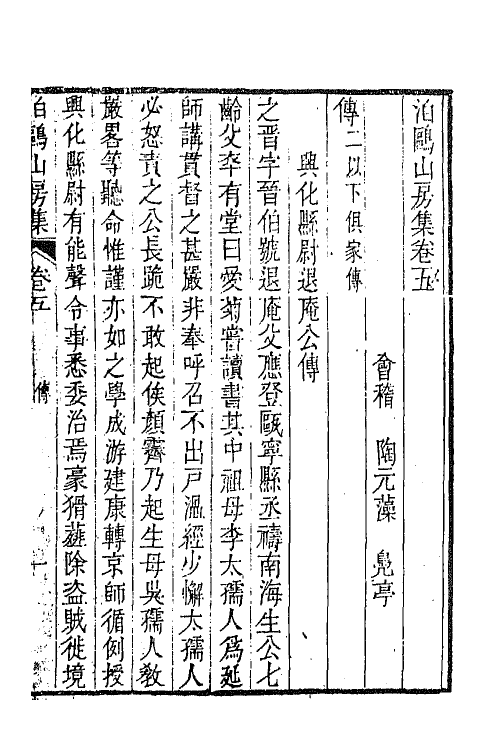 泊鷗山房集卷五
會稽 陶元藻 鳧亭
傳二以下俱家傳
興化縣尉退庵公傳
之晋字晉伯號退庵父應登甌寧縣丞禱南海生公七
齡父卒有堂曰愛菊嘗讀書其中祖母李太孺人爲延
師講貫督之甚嚴非奉呼召不出戸溫經少懈太孺人
必怒責之公長跪不敢起俟顏霽乃起生母吳孺人敎
嚴畧等聽命惟謹亦如之學成游建康轉京師循例授
興化縣尉有能聲令事悉委治焉豪猾薙除盜賊徙境
泊鷗山房集 卷五 傳 一